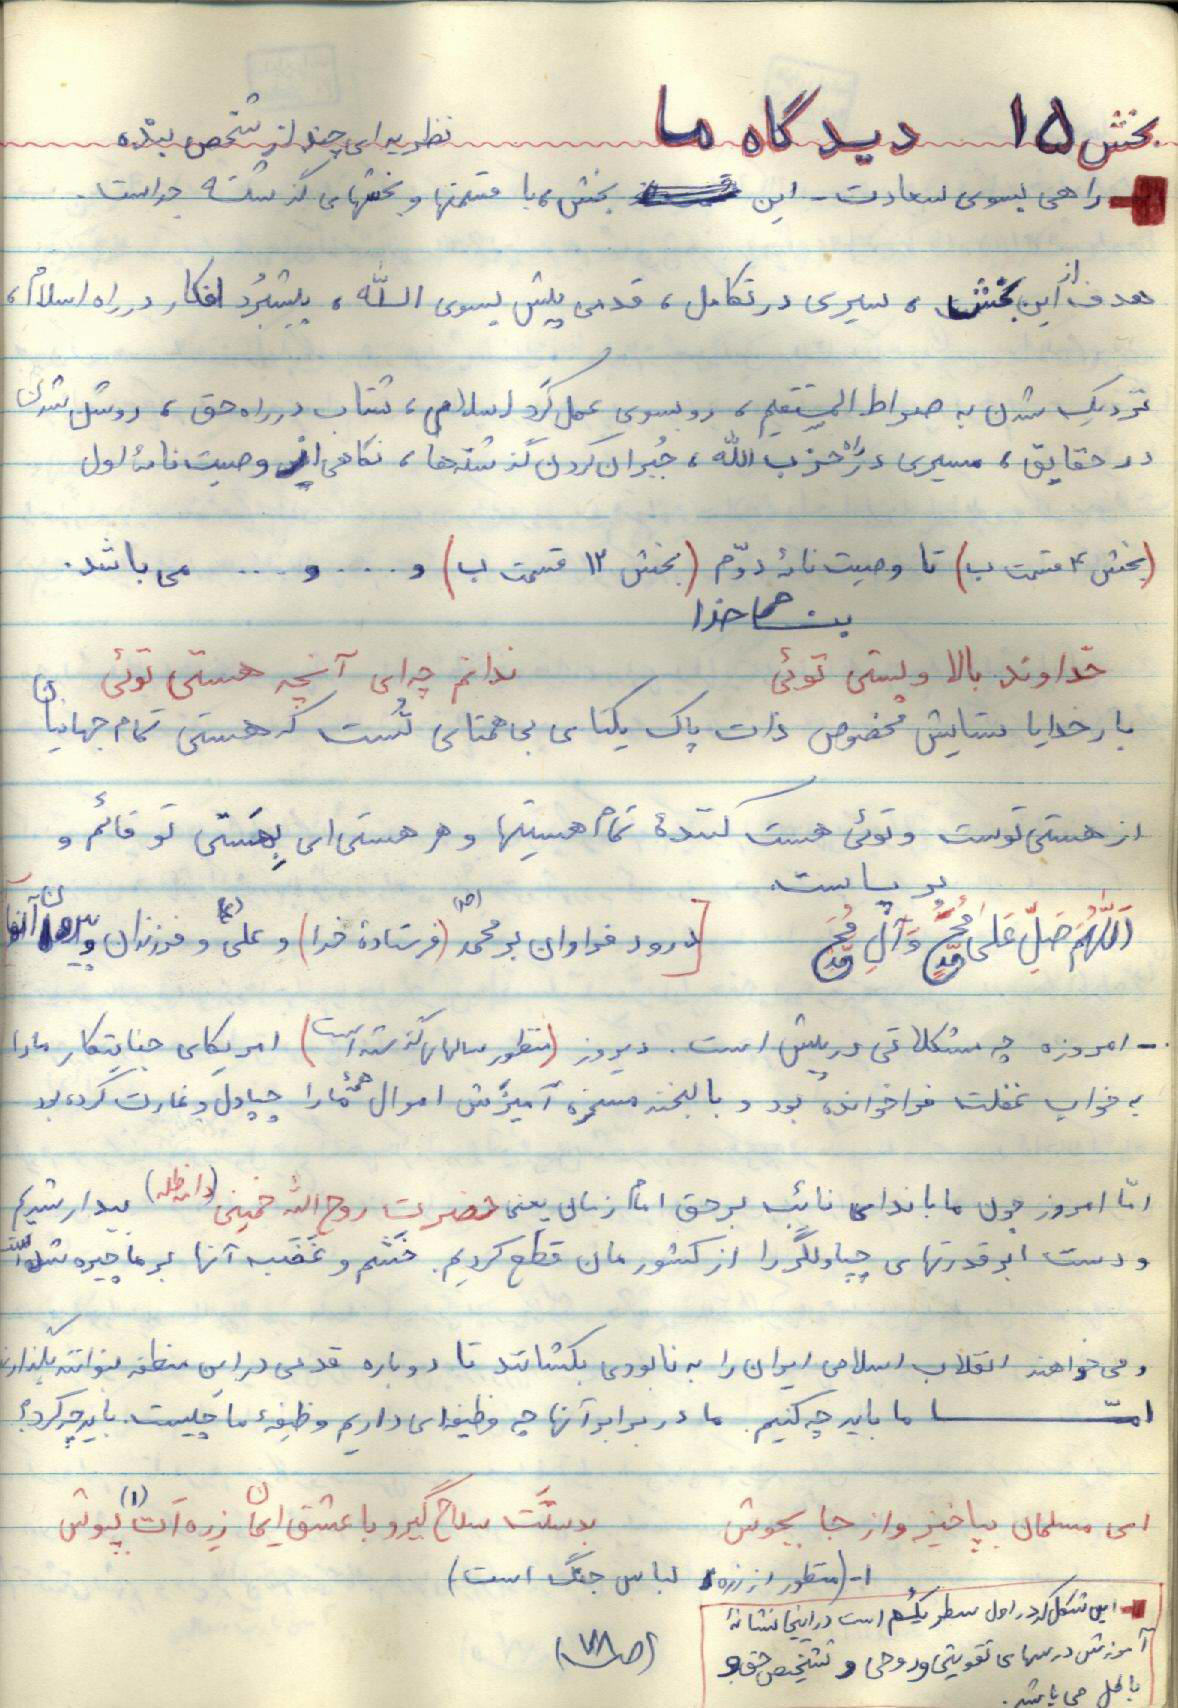 بخش ۱۵ دیدگاه ما نظریه‌ای چند از شخص بنده
راهی بسوی سعادت - این بخش، با قسمتها و بخشهای گذشته جداست.
هدف از این بخش، سیری در تکامل، قدمی پیش بسوی الله، پیشبُرد افکار در راه اسلام،
نزدیک شدن به صراط المستقیم، رو بسوی عمل کرد اسلامی، شتاب در راه حق، روشن شدن
در حقایق، مسیری در راه حزب الله، جُبران کردن گذشته‌ها، نگاهی از وصیت نامهٔ اول
(بخش ۴ قسمت ب) تا وصیت نامهٔ دوّم (بخش ۱۳ قسمت ب) و .... و .... می باشد.
بنام خدا
خداوند بالا و پستی توئی ندانم چه‌ای آنچه هستی توئی
بار خدایا ستایش مخصوص ذات پاک یکتای بی همتای تُست که هستی تمام جهانیان
از هستی توست و توئی هست کنندهٔ تمام هستیها و هر هستی‌ای بِهَستی تو قائم و
بر پاست.
اَللّهُمَّ صَلِّ عَلی مُحَمَّدٍ وَ آلِ مُحَمَّد [درود فراوان بر محمد (ص) (فرستادهٔ خدا) و علی (ع) و فرزندان و پیروان آنها
- امروزه چه مشکلاتی در پیش است. دیروز (منظور سالهای گذشته است) امریکای جنایتکار ما را
به خواب غفلت فرا خوانده بود و با لبخند مسخره آمیزش اموال همهٔ ما را چپاول و غارت کرده بود
امّا امروز چون ما با ندای نائب بر حق امام زمان یعنی حضرت روح الله خمینی (دامه ظله) بیدار شدیم
و دست ابر قدرتهای چپاولگر را از کشورمان قطع کردیم. خشم و غضب آنها بر ما چیره شده است
و می خواهند انقلاب اسلامی ایران را به نابودی بکشانند تا دوباره قدمی در این منطقه بتوانند بگذارند
امّــا ما باید چه کنیم. ما در برابر آنها چه وظیفه‌ای داریم وظیفهٔ ما چیست. باید چه کرد؟
ای مسلمان بپاخیز و از جا بجوش بدستَت سلاح گیر و با عشق ایمان زره‌اَت (۱) بپوش
۱- (منظور از زره، لباس جنگ است)
- این شکل که در اول سطر یکُم است در اینجا نشانهٔ
آموزش درسهای تقویتی و روحی و تشخیص حق و
باطل می باشد.
(ص ۷۸)